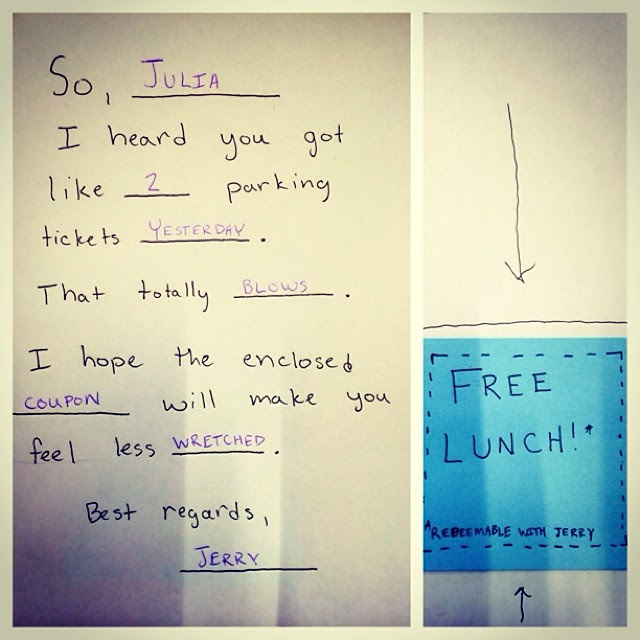 So, JULIA
I heard you got
like 2 parking
tickets YESTERDAY.
That totally BLOWS.
I hope the enclosed
COUPON will make you
feel less WRETCHED.
Best regards,
JERRY
FREE
LUNCH!*
*REDEEMABLE WITH JERRY